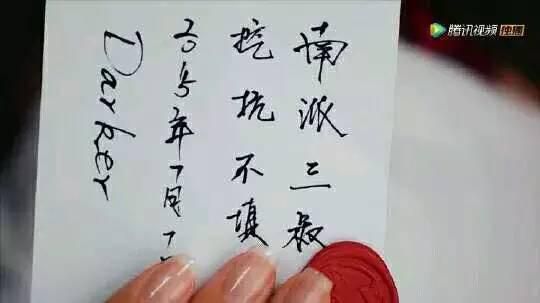 南派三叔
挖坑不填
2015年7月1
Darker
腾讯视频 独播